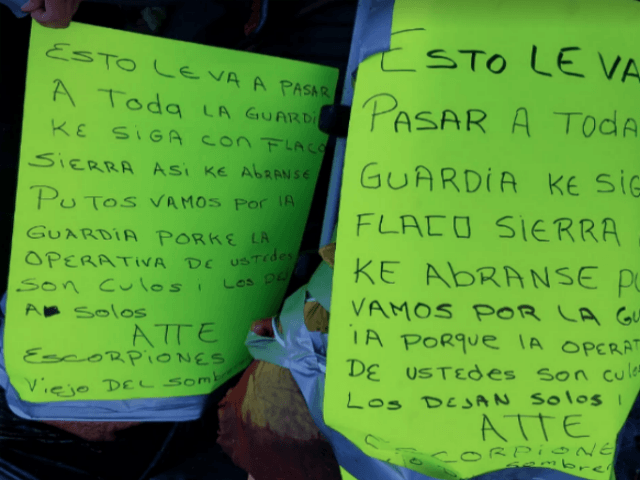 ESTO LE VA A PASAR
A TODA LA GUARDI
KE SIGA CON FLACO
SIERRA ASI KE ABRANSE
PUTOS VAMOS POR lA
GUARDIA PORKE LA
OPERATIVA DE USTEDES
SON CULOS I LOS DEJ
A SOLOS
ATTE
ESCORPIONES
VIEJO DEL Sombre
ESTO LE VA
PASAR A TODA
GUARDIA KE SIG
FLACO SIERRA
KE AbRANSE PU
VAMOS POR LA GU
IA PORQUE lA OPERAT
DE USTEDES SON CULO
LOS DEJAN SOLOS I
ATTE
ESCORPIONE
sombre